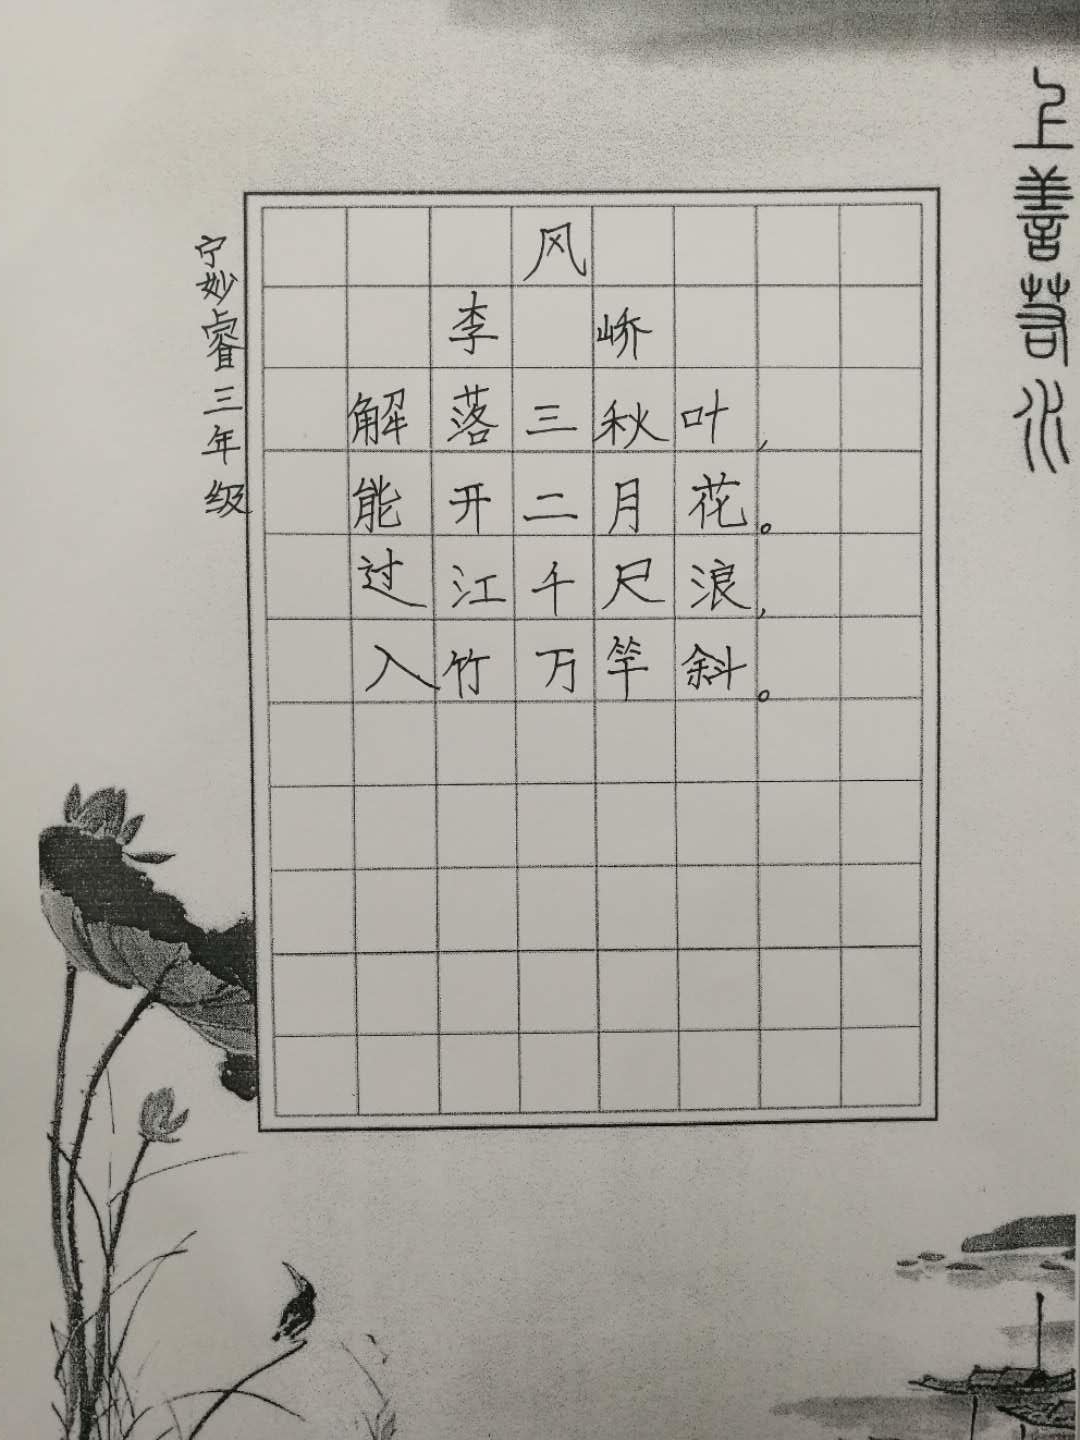 上善若水
风
李峤
解落三秋叶，
能开二月花。
过江千尺浪，
入竹万竿斜。
宁妙睿三年级